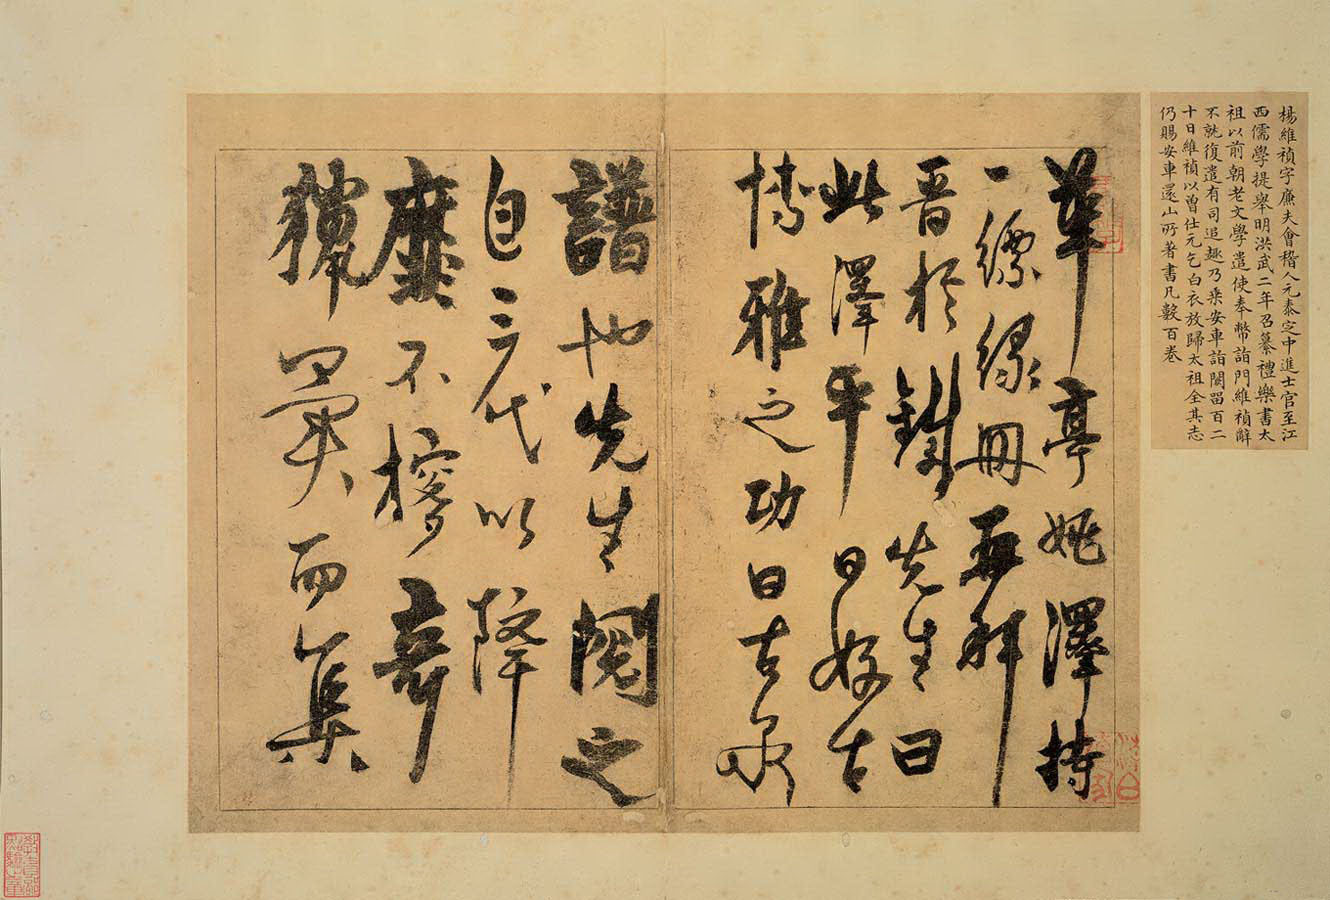 楊維禎字廉夫會稽人元泰定中進士官至江
西儒學提舉明洪武二年召纂禮樂書太
祖以前朝老文學遣使奉幣詣門維禎辭
不就復遣有司追趣乃乘安車詣闕留百二
十日維禎以曾仕元乞白衣放歸太祖全其志
仍賜安車還山所著書凡數百卷
華亭姚澤持
一縹緣冊再拜
晋於鐵先生曰
此澤平日好古
博雅之功曰古泉
譜也先生閱之
自三代以降
靡不奇
獵異而集